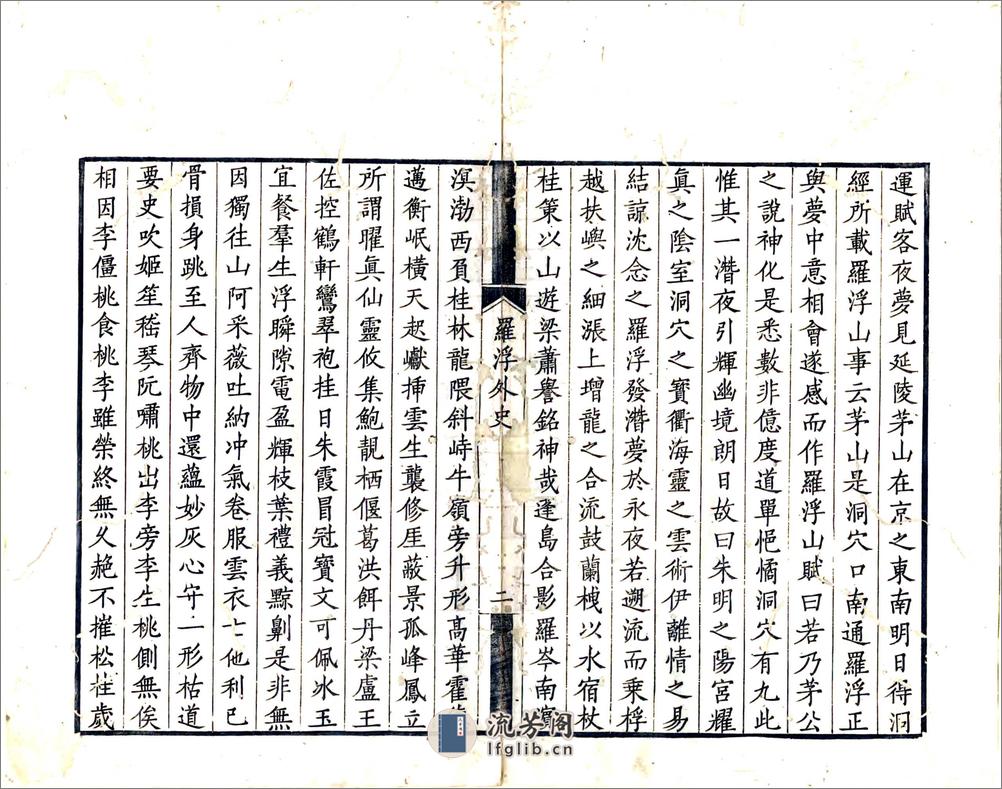 運賦客夜夢見延陵茅山在京之東南明日得洞
經所載羅浮山事云茅山是洞穴口南通羅浮正
與夢中意相會遂感而作羅浮山賦曰若乃茅公
之說神化是悉數非億度道單悒憰洞穴有九此
惟其一潛夜引輝幽境朗日故曰朱明之陽宮耀
眞之陰室洞穴之寳衢海靈之雲術伊離情之易
結諒沈念之羅浮發潛夢於永夜若遡流而乘桴
越扶嶼之細漲上增龍之合流鼓蘭栧以水宿杖
桂策以山遊梁蕭譽銘神哉蓬島合影羅岑南
羅浮外史
二
溟渤西頁桂林龍隈斜峙牛嶺旁升形高華霍
邁衡岷橫天起巘揷雲生襲修厓蔽景孤峰鳳立
所謂曜眞仙靈攸集鮑靚栖偃葛洪餌丹梁盧王
佐控鶴軒鸞翠袍桂日朱霞冒冠寶文可佩冰玉
宜餐羣生浮瞬隙電盈輝枝葉禮義黥劓是非無
因獨往山阿采薇吐納冲氣卷服雲衣亡他利已
骨損身跳至人齊物中還蘊妙灰心守一形枯道
要史吹姬笙嵇琴阮嘯桃出李旁李生桃側無俟
相因李僵桃食桃李雖榮終無久赩不摧松桂歲
流芳阁
lfglib.cn